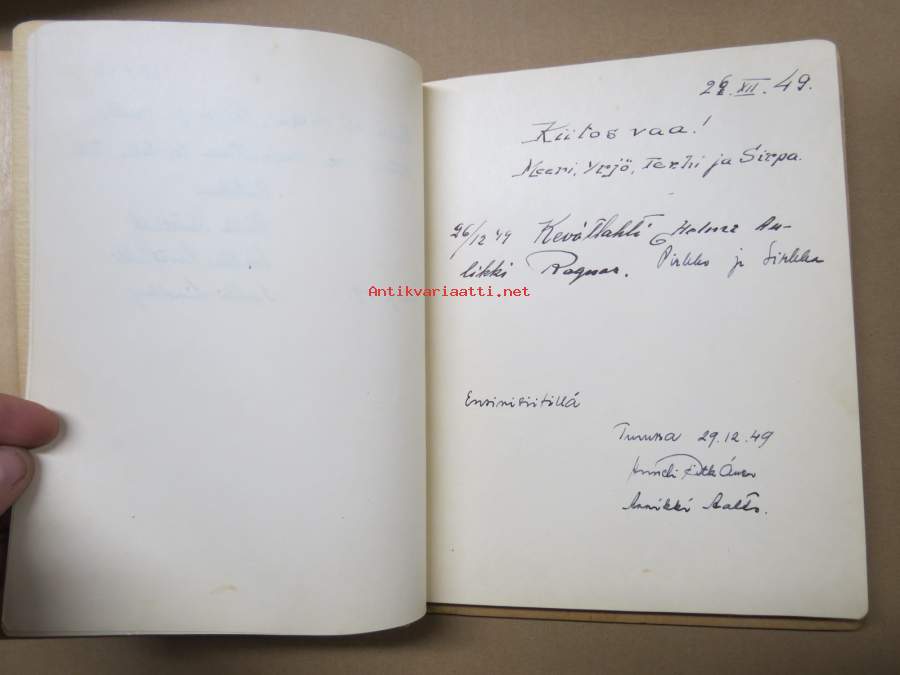 26.XII.49.
Kiitos vaa!
Meeri, Yrjö, Terhi ja Sirpa.
26/12 49 Kevätlahti Helmi Au-
likki Ragnar. Pirkko ja Sirkka
Antikvariaatti.net
Ensivisiitillä
Turussa 29.12.49
Annikki Aalto.